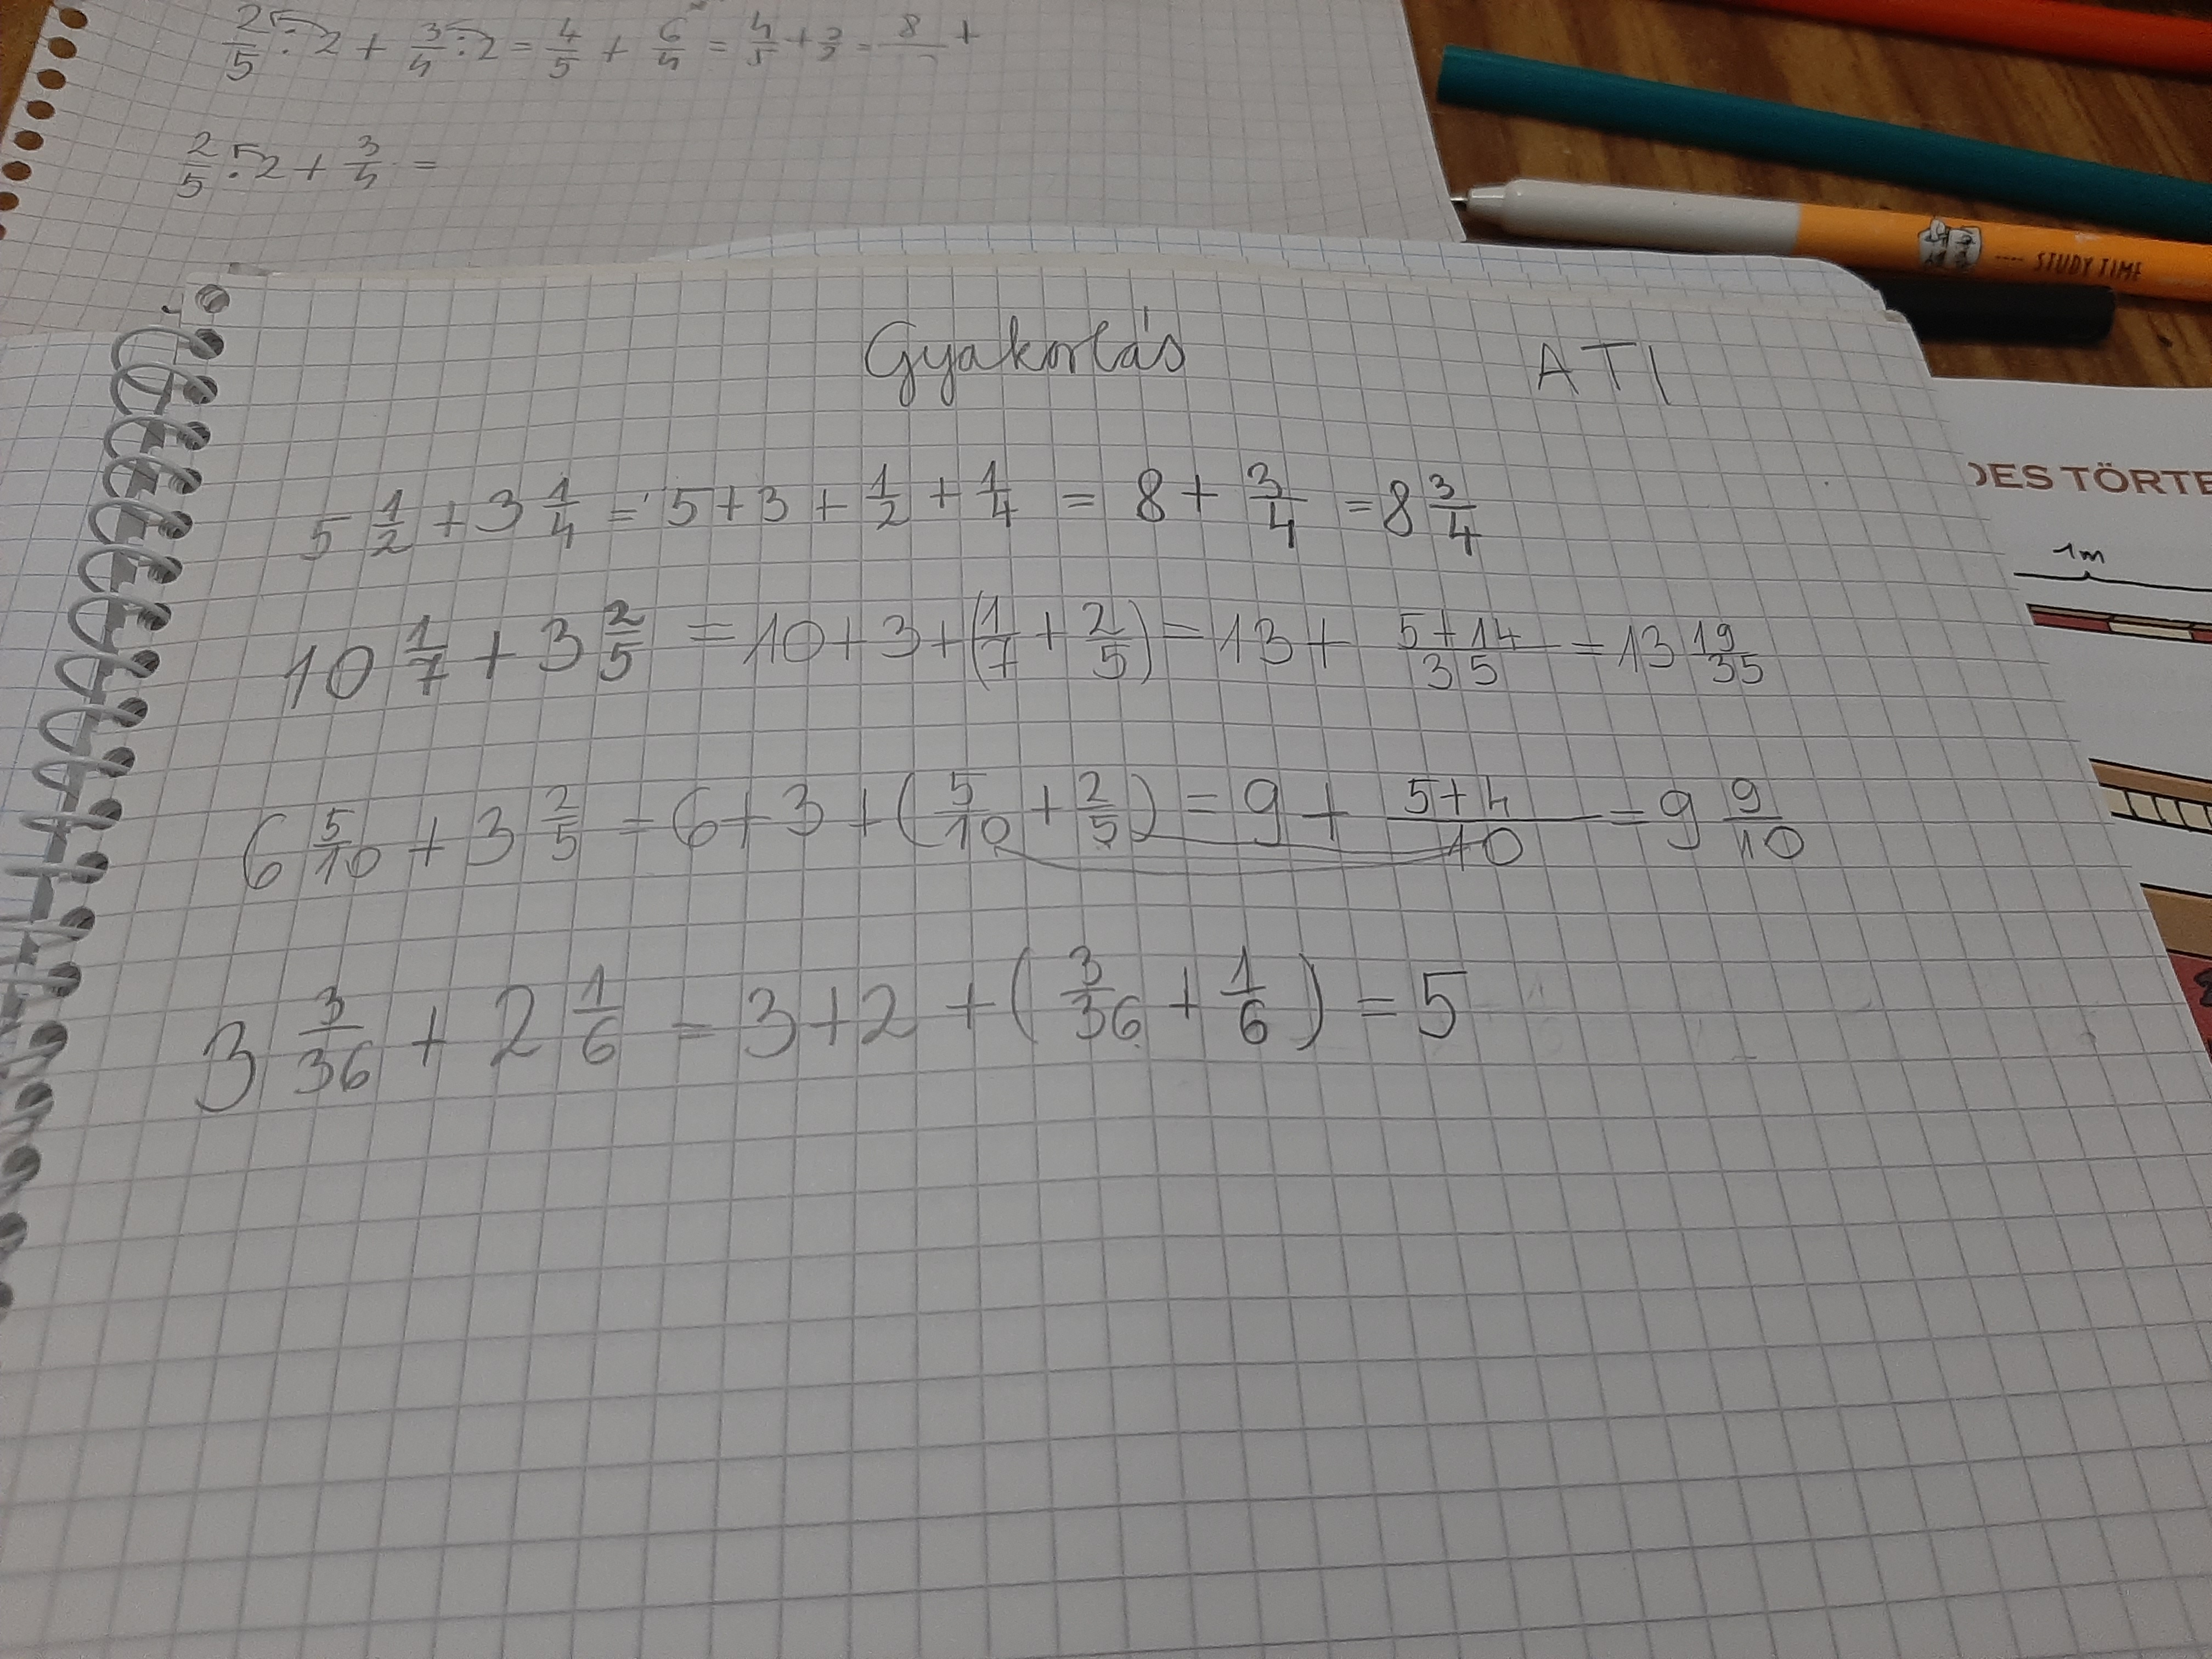 2/5 : 2 + 3/4 : 2 = 4/5 + 6/4 = 4/5 + 3/2 = 8/ +
2/5 : 2 + 3/4 =
STUDY TIME
Gyakorlás ATI
DES TÖRTE
1m
5 1/2 + 3 1/4 = 5 + 3 + 1/2 + 1/4 = 8 + 3/4 = 8 3/4
10 1/7 + 3 2/5 = 10 + 3 + (1/7 + 2/5) = 13 + (5+14)/35 = 13 19/35
6 5/10 + 3 2/5 = 6 + 3 + (5/10 + 2/5) = 9 + (5+4)/10 = 9 9/10
3 3/36 + 2 1/6 = 3 + 2 + (3/36 + 1/6) = 5